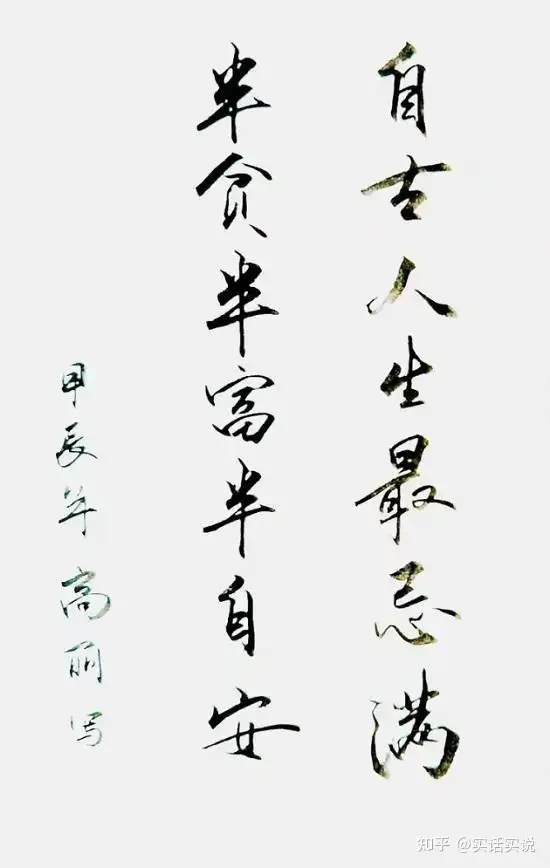 自古人生最忌满
半贫半富半自安
甲辰年高丽写
知乎 @实话实说